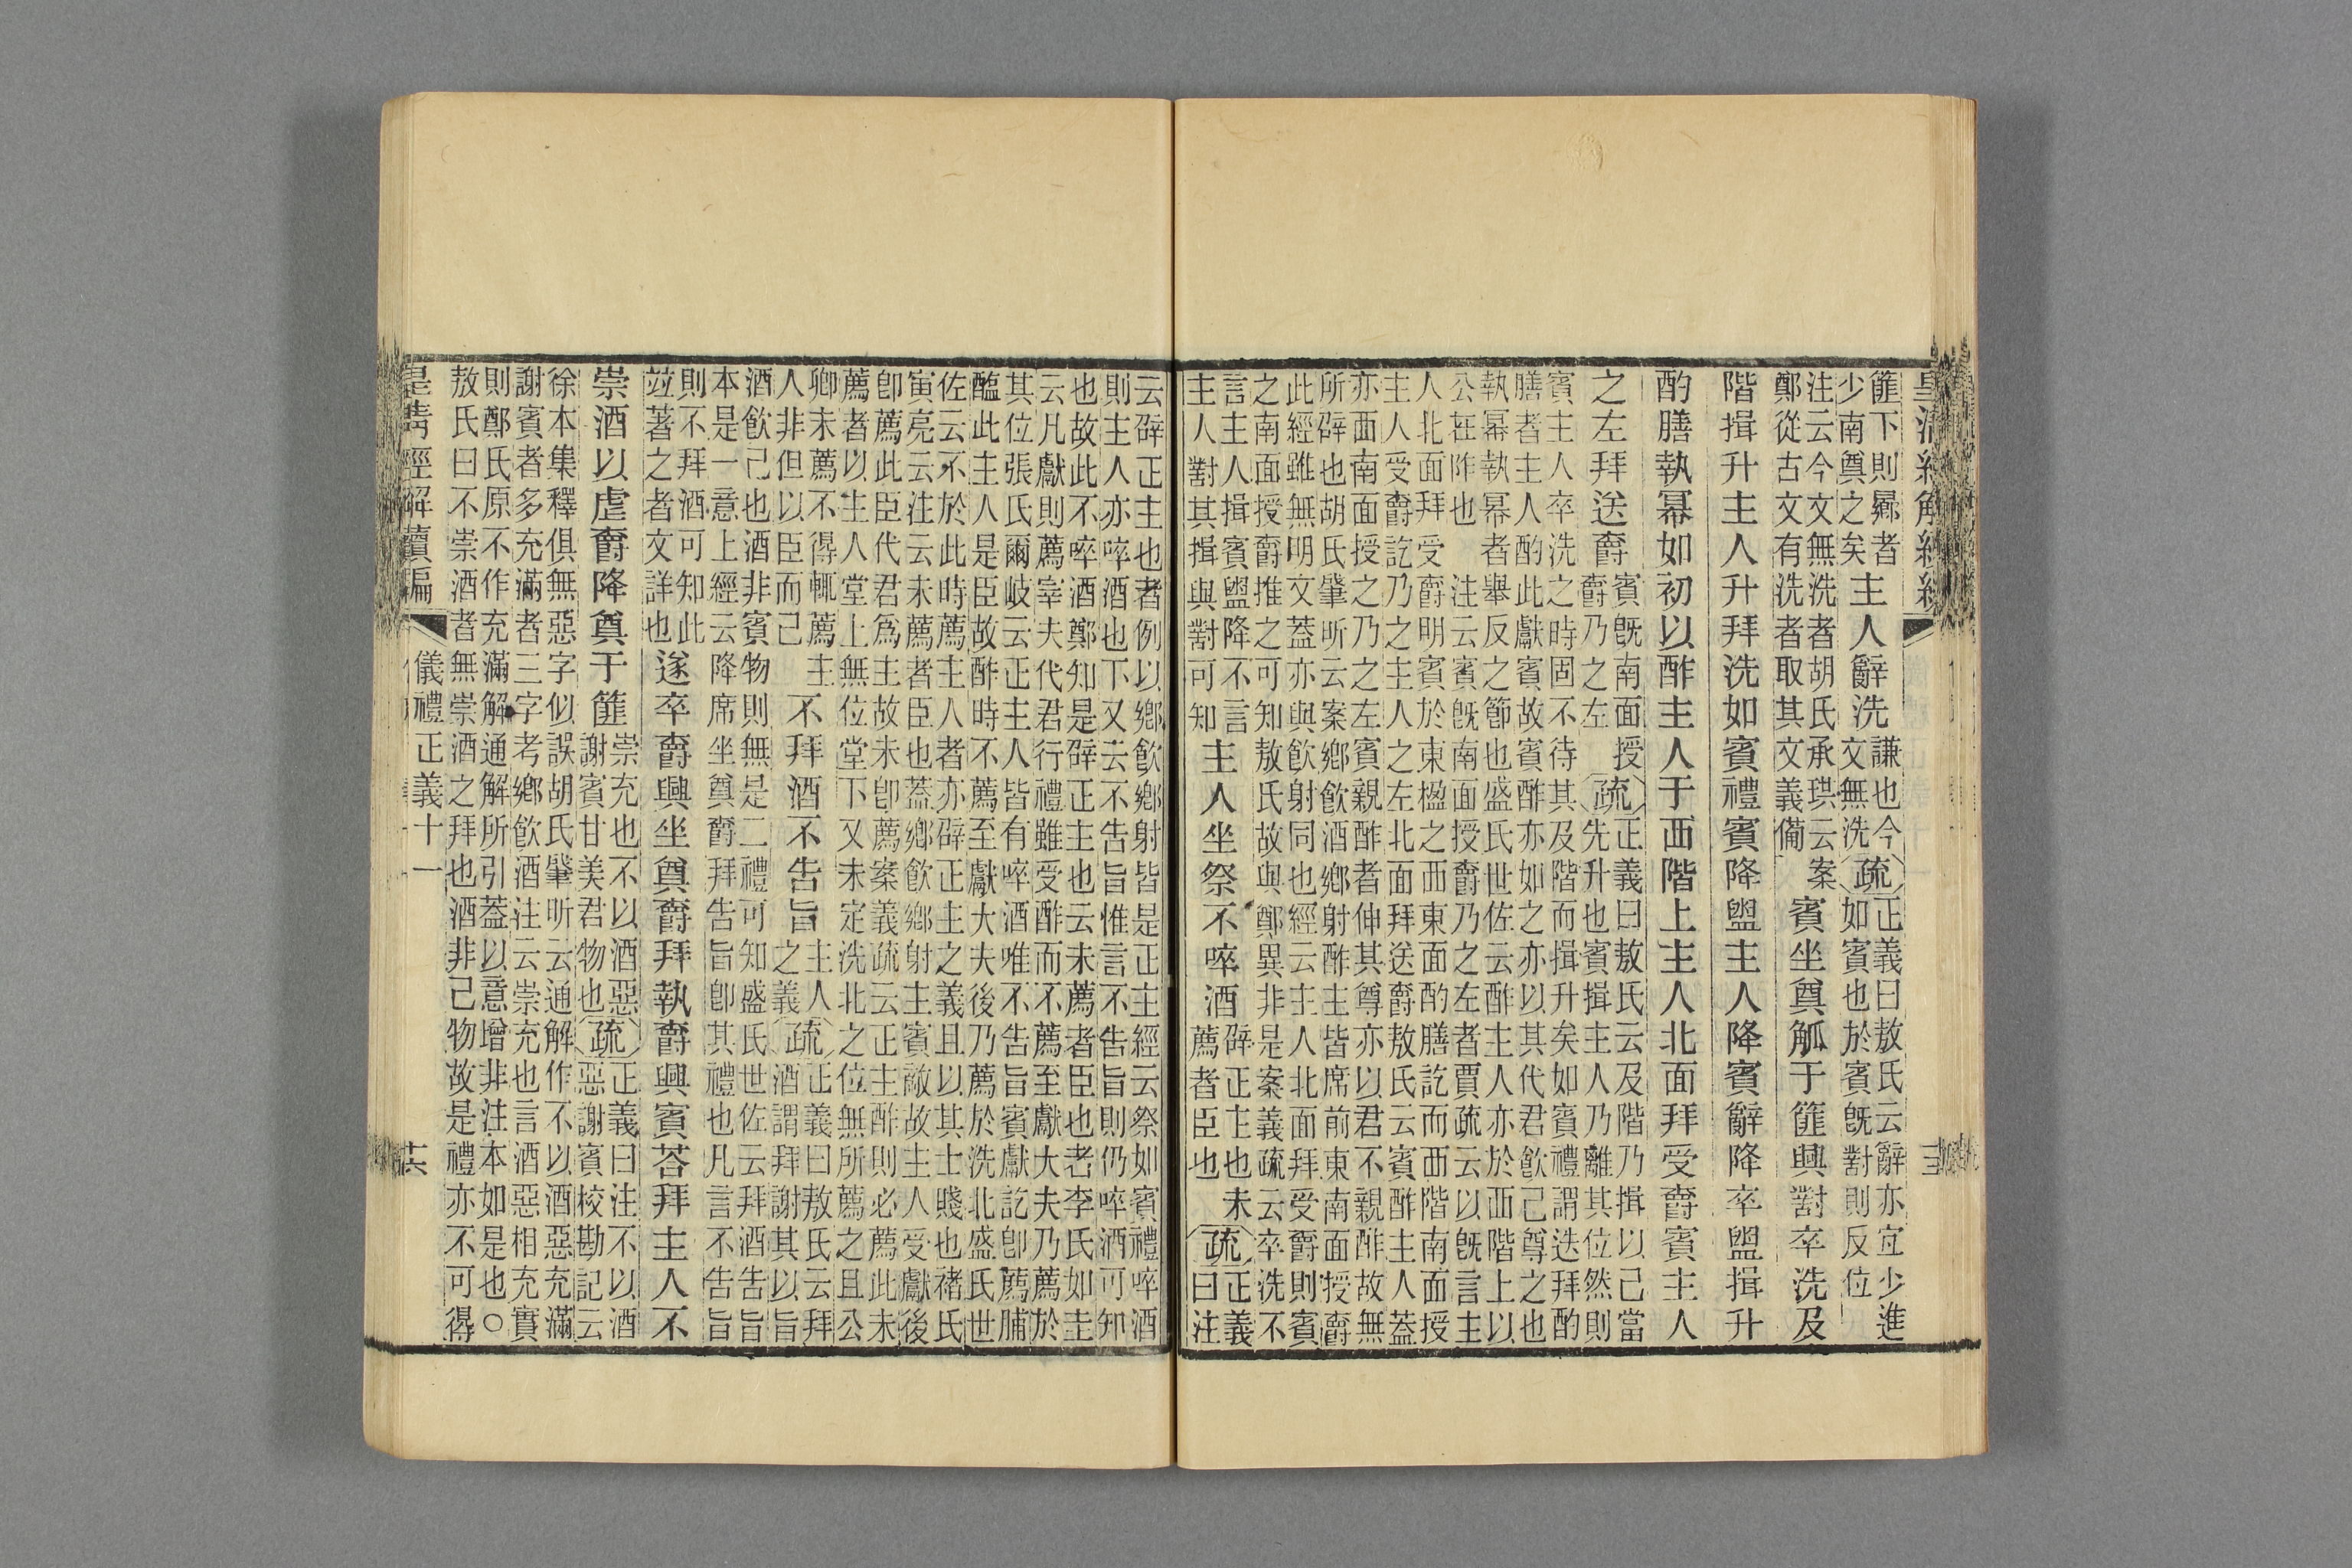 皇清經解續編
篚下則鄉者
少南奠之矣
主人辭洗
謙也今
文無洗
疏
正義曰敖氏云辭亦宜少進
如賓也於賓旣對則反位
注云今文無洗者胡氏承珙云案
鄭從古文有洗者取其文義備
賓坐奠觚于篚興對卒洗及
階揖升主人升拜洗如賓禮賓降盥主人降賓辭降卒盥揖升
酌膳執冪如初以酢主人于西階上主人北面拜受爵賓主人
之左拜送爵
賓旣南面授
爵乃之左
疏
正義曰敖氏云及階乃揖以己當
先升也賓揖主人乃離其位然則
賓主人卒洗之時固不待其及階而揖升矣如賓禮謂迭拜酌
膳者主人酌此獻賓故賓酢亦如之亦以其代君飮己尊之也
執冪執冪者舉反之節也盛氏世佐云酢主人亦於西階上以
公在阼也 注云賓旣南面授爵乃之左者賈疏云以旣言主
人北面拜受爵明賓於東楹之西東面酌膳訖而西階南面授
主人受爵訖乃之主人之左北面拜送爵敖氏云賓酢主人蓋
亦西南面授之乃之左賓親酢者伸其尊亦以君不親酢故無
所辟也胡氏肇昕云案鄉飮酒鄉射酢主皆席前東南面授爵
此經雖無明文蓋亦與飮射同也經云主人北面拜受爵則賓
之南面授爵推之可知敖氏故與鄭異非是案義疏云卒洗不
言主人揖賓盥降不言
主人對其揖與對可知
主人坐祭不啐酒
辟正主也未
薦者臣也
疏
正義
曰注
云辟正主也者例以鄉飮鄉射皆是正主經云祭如賓禮啐酒
則主人亦啐酒也下又云不告旨惟言不告旨則仍啐酒可知
也故此不啐酒鄭知是辟正主也云未薦者臣也者李氏如圭
云凡獻則薦宰夫代君行禮雖受酢而不薦至獻大夫乃薦於
其位張氏爾岐云正主人皆有啐酒唯不告旨賓獻訖卽薦脯
醢此主人是臣故酢時不薦至獻大夫後乃薦於洗北盛氏世
佐云不於此時薦主人者亦辟正主之義且以其士賤也褚氏
寅亮云注云未薦者臣也蓋鄉飮鄉射主賓敵故主人受獻後
卽薦此臣代君爲主故未卽薦案義疏云正主酢則必薦此未
薦者以主人堂上無位堂下又未定洗北之位無所薦之且公
卿未薦不得輒薦主
人非但以臣而已
不拜酒不告旨
主人
之義
疏
正義曰敖氏云拜
酒謂拜謝其以旨
酒飮己也酒非賓物則無是二禮可知盛氏世佐云拜酒告旨
本是一意上經云降席坐奠爵拜告旨卽其禮也凡言不告旨
則不拜酒可知此
竝著之者文詳也
遂卒爵興坐奠爵拜執爵興賓荅拜主人不
崇酒以虛爵降奠于篚
崇充也不以酒惡
謝賓甘美君物也
疏
正義曰注不以酒
惡謝賓校勘記云
徐本集釋俱無惡字似誤胡氏肇昕云通解作不以酒惡充滿
謝賓者多充滿者三字考鄉飮酒注云崇充也言酒惡相充實
則鄭氏原不作充滿解通解所引蓋以意增非注本如是也○
敖氏曰不崇酒者無崇酒之拜也酒非己物故是禮亦不可得
皇清經解續編
儀禮正義十一
十六